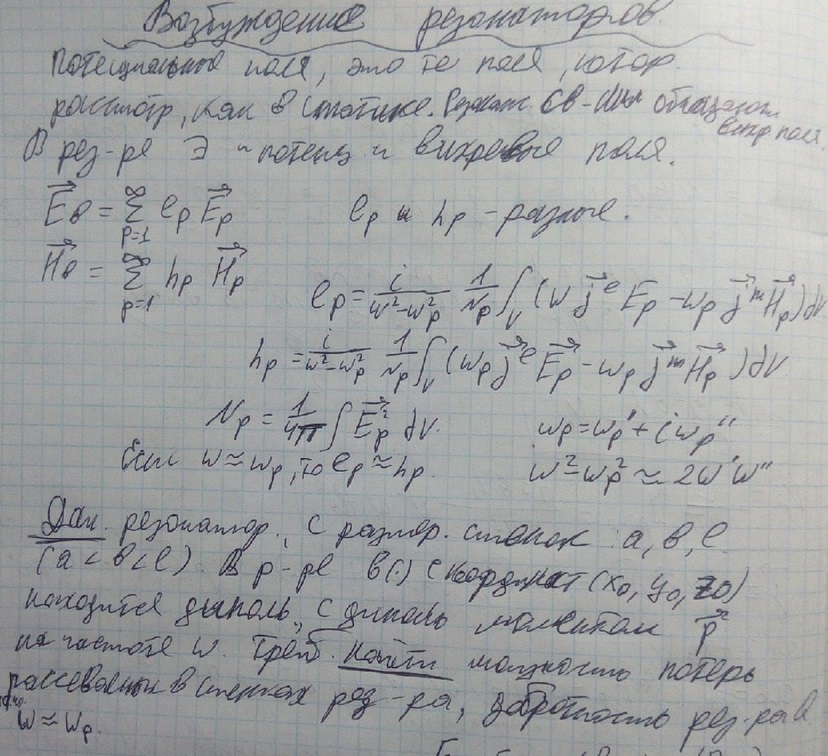 Возбуждение резонаторов.
Потенциальные поля, это те поля, котор.
рассмотр, как в статике. Резонанс. св-ами обладают
вихр поля.
В рез-ре Э и потенц и вихревые поля.
E⃗в = ∑_{p=1}^{∞} e_p E⃗_p      e_p и h_p - разные.
H⃗в = ∑_{p=1}^{∞} h_p H⃗_p
e_p = i/(ω²-ω²_p) 1/N_p ∫_V (ω j⃗^e E_p - ω_p j⃗^m H⃗_p) dV
h_p = i/(ω²-ω_p²) 1/N_p ∫_V (ω_p j⃗^e E⃗_p - ω_p j⃗^m H⃗_p) dV
N_p = 1/4π ∫ E⃗_p² dV.      ω_p = ω_p' + iω_p''
Если ω ≈ ω_p, то e_p ≈ h_p.      ω²-ω_p² ≈ 2ω'ω''
Дан. резонатор, с размер. стенок a, b, l
(a < b < l). В р-ре в (·) с координат (x₀, y₀, z₀)
находится диполь, с диполь моментом p⃗
на частоте ω. Треб. найти мощность потерь
рассеваемых в стенках рез-ра, добротность рез-ра
ω ≈ ω_p.